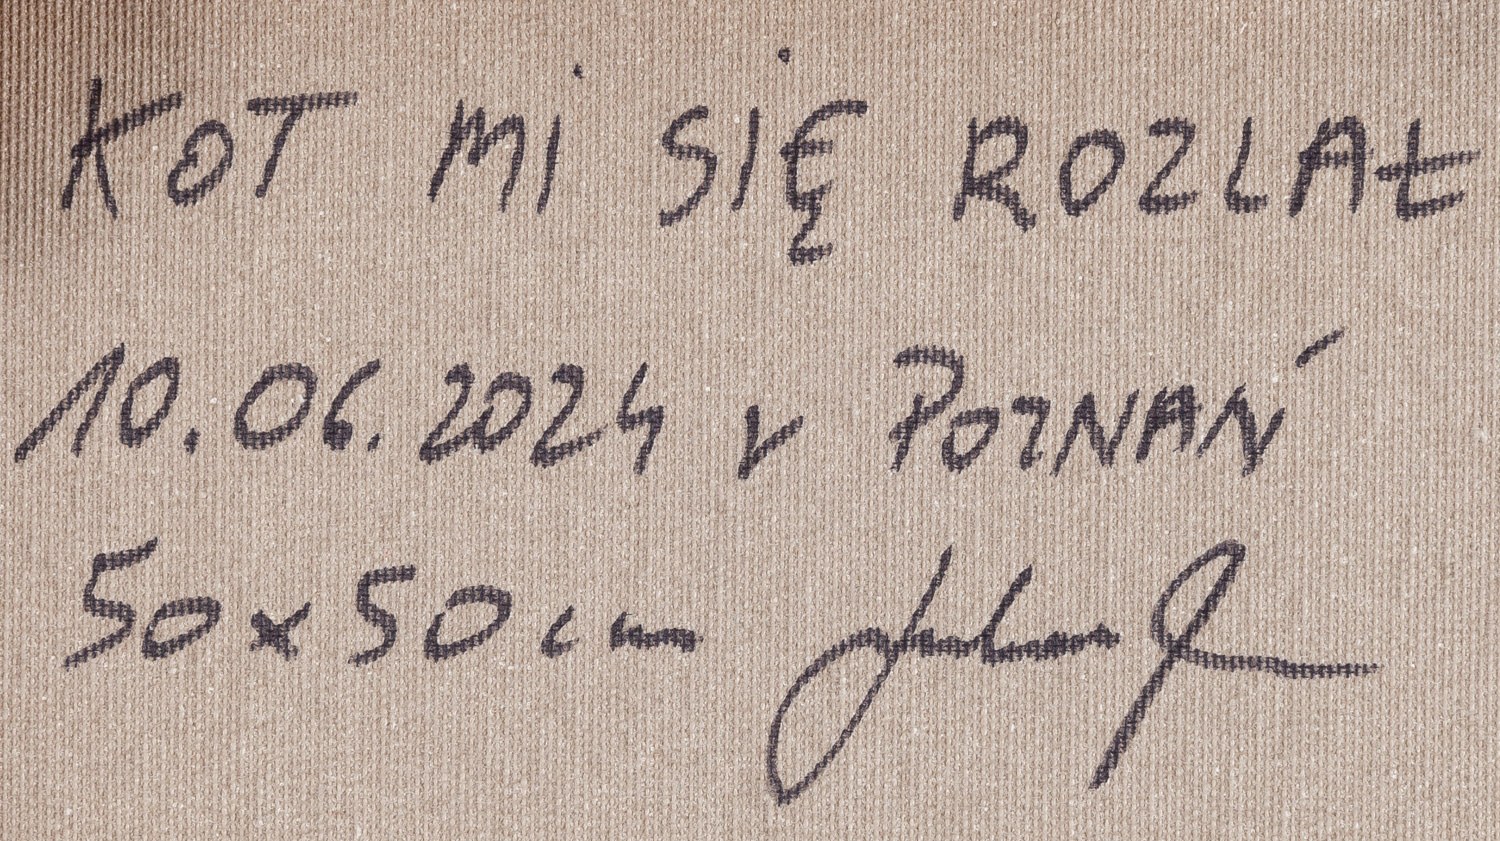 KOT Mi SIĘ ROZLAŁ
10.06.2024 r POZNAŃ
50x50cm